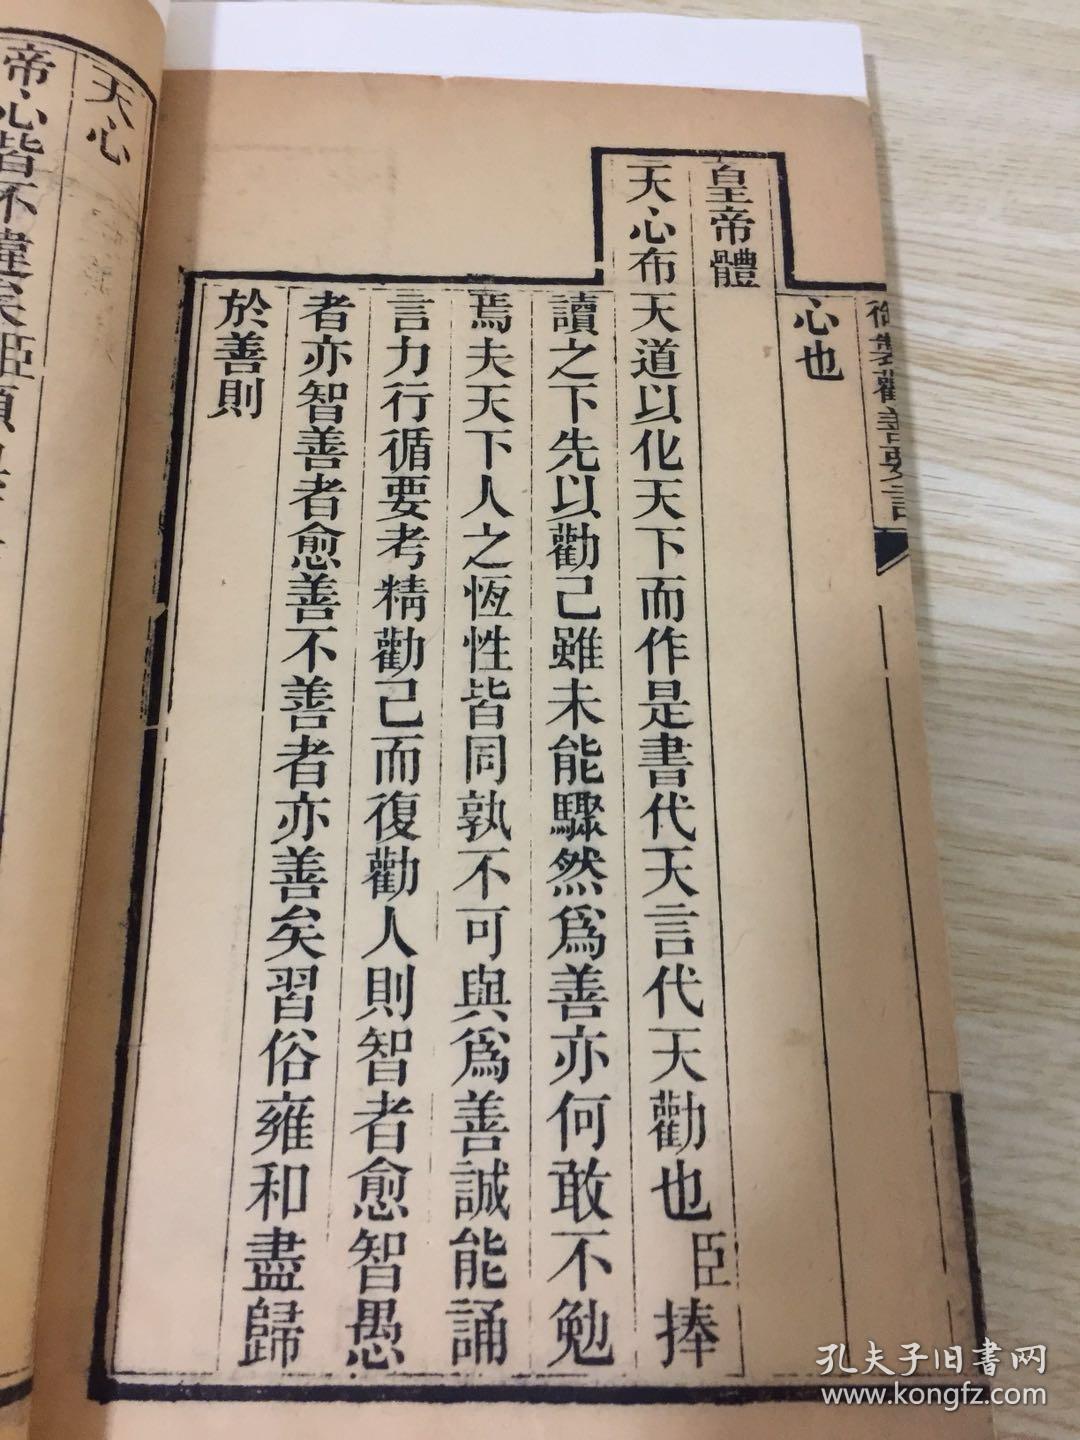 御製勸善要言
心也
皇帝體
天心布天道以化天下而作是書代天言代天勸也臣捧
讀之下先以勸己雖未能驟然爲善亦何敢不勉
焉夫天下人之恆性皆同孰不可與爲善誠能誦
言力行循要考精勸己而復勸人則智者愈智愚
者亦智善者愈善不善者亦善矣習俗雍和盡歸
於善則
天心
帝心皆不違矣臣
孔夫子旧書网
www.kongfz.com